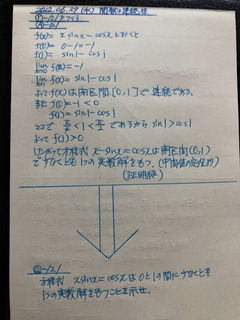 2022.06.29(水) 関数の連続性
f(x) = x sinx − cosx とおくと
f(0) = 0−1 = −1
f(1) = sin1 − cos1
lim f(x) = −1
lim f(x) = sin1 − cos1
よって f(x) は閉区間 [0,1] で連続である。
また f(0) = −1 < 0
f(1) = sin1 − cos1
ここで π/4 < 1 < π/2 であるから sin1 > cos1
よって f(1) > 0
したがって方程式 x sinx = cosx は開区間 (0,1)
で少なくとも1つの実数解をもつ。(中間値の定理より)
(証明終)
②-121
方程式 x sinx = cosx は 0と1の間に少なくとも
1つの実数解をもつことを示せ。